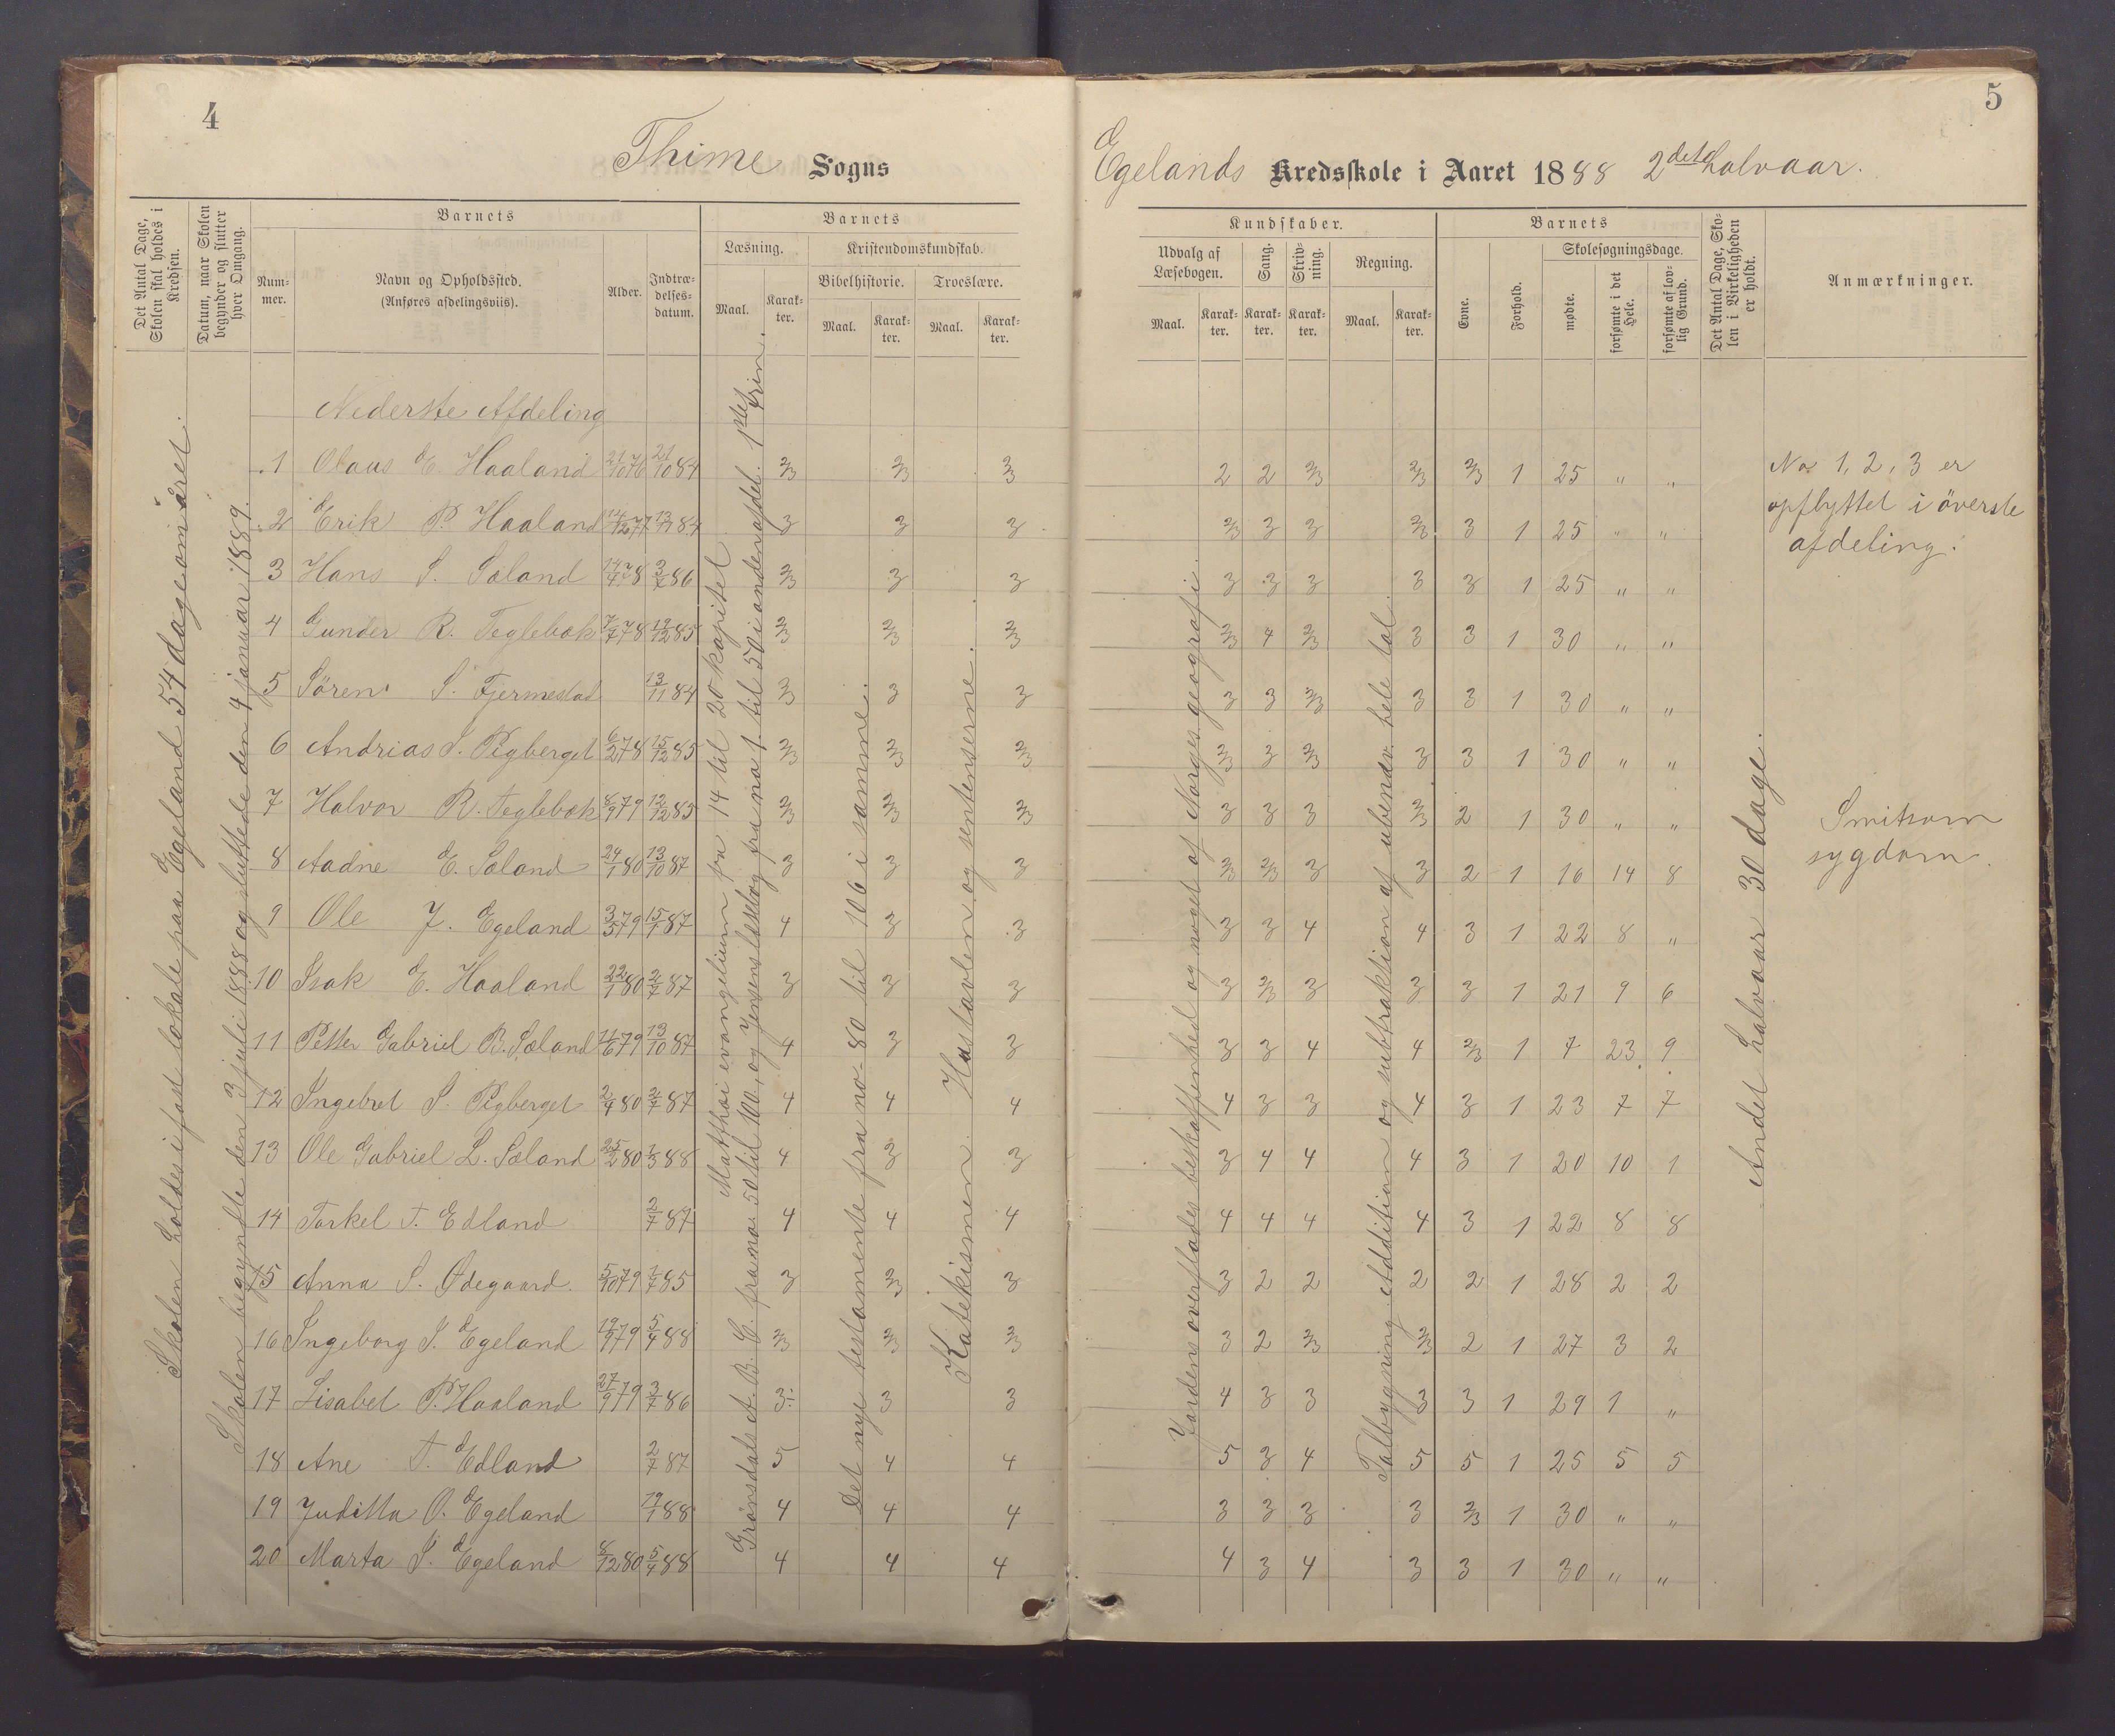 4
Thime Sogns
Det Antal Dage, Skolen skal holdes i Kredsen.
Datum, naar Skolen begynder og slutter hver Omgang.
Barnets
Nummer.
Navn og Opholdssted.
(Anføres afdelingsviis).
Alder.
Indtrædelses-datum.
Barnets
Læsning.
Kristendomskundskab.
Bibelhistorie.
Troeslære.
Maal.
Karakter.
Maal.
Karakter.
Maal.
Karakter.
Skolen holdes i fast lokale paa Egeland 54 dage om året.
Skolen begyndte den 3 juli 1888 og sluttede den 4 januar 1889.
Matthæi evangelium fra 14 til 20 kapitel
Grønsdals A. B. C. fra no. 50 til 100, og Jensens læsebog fra no 1. til 50 i anden afdel. 1ste trin.
Det nye testamente fra no- 80 til 106 i samme.
Katekismen. Hustavlen og sentenserne.
Nederste Afdeling
1 Olaus E. Haaland 21/10 76 21/10 84 2/3 2/3 2/3
2 Erik P. Haaland 14/12 77 13/11 84 3 3 3
3 Hans S. Sæland 14/4 78 3/7 86 2/3 3 3
4 Gunder R. Teglebæk 7/7 78 19/12 85 2/3 2/3 2/3
5 Sören S. Fjermestad 13/11 84 2/3 3 3
6 Andrias S. Rigberget 6/2 78 15/12 85 2/3 2/3 2/3
7 Halvor R. Teglebæk 8/9 79 12/12 85 2/3 2/3 2/3
8 Aadne E. Sæland 24/1 80 13/10 87 3 3 3
9 Ole J. Egeland 3/5 79 15/7 87 4 3 3
10 Isak E. Haaland 22/1 80 2/7 87 3 3 3
11 Petter Gabriel B. Sæland 11/6 79 13/10 87 4 3 3
12 Ingebret S. Rigberget 2/4 80 2/7 87 4 4 4
13 Ole Gabriel L. Sæland 25/2 80 1/3 88 4 3 3
14 Torkel T. Edland 2/7 87 4 4 4
15 Anna S. Ødegaard. 5/10 79 1/7 85 3 2/3 3
16 Ingeborg S. Egeland 19/9 79 5/4 88 2/3 2/3 2/3
17 Lisabet P. Haaland 27/9 79 3/7 86 3 3 3
18 Ane T. Edland 2/7 87 5 4 4
19 Juditta O. Egeland 19/1 88 4 4 4
20 Marta S. Egeland 8/12 80 5/4 88 4 4 4
5
Egelands Kredsskole i Aaret 1888 2det halvaar.
Kundskaber.
Udvalg af Læsebogen.
Sang.
Skrivning.
Regning.
Maal.
Karakter.
Karakter.
Karakter.
Maal.
Karakter.
Barnets
Evne.
Forhold.
Skolesøgningsdage.
mødte.
forsømte i det Hele.
forsømte af lovlig Grund.
Det Antal Dage, Skolen i Virkeligheden er holdt.
Anmærkninger.
Jordens overflades beskaffenhed og noget af Norges geografi.
Talbygning. Addition og subtraktion af ubenævn. hele tal.
Andet halvaar 30 dage.
2 2 2/3 2/3 2/3 1 25 " "
2/3 3 3 2/3 3 1 25 " "
3 3 3 3 3 1 25 " "
2/3 4 2/3 3 3 1 30 " "
3 3 2/3 3 3 1 30 " "
2/3 3 2/3 3 3 1 30 " "
3 3 3 2/3 2 1 30 " "
2/3 2/3 3 3 2 1 16 14 8
3 3 4 4 3 1 22 8 "
3 2/3 3 3 3 1 21 9 6
3 3 4 4 2/3 1 7 23 9
4 3 3 4 3 1 23 7 7
3 4 4 4 3 1 20 10 1
4 4 4 4 3 1 22 8 8
3 2 2 2 2 1 28 2 2
3 2 2/3 2/3 2 1 27 3 2
4 3 3 3 3 1 29 1 "
5 3 4 5 5 1 25 5 5
3 3 3 3 2/3 1 30 " "
4 3 4 3 3 1 30 " "
No 1, 2, 3 er
opflyttet i överste
afdeling.
Smitsom
sygdom.